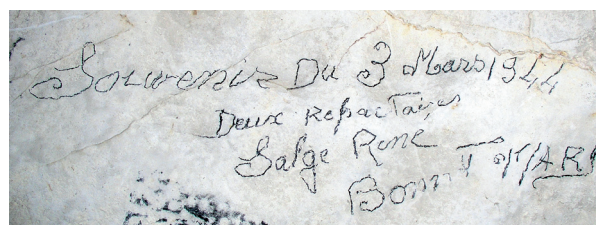 Souvenir Du 3 Mars 1944
Deux Refractaires
Salge René